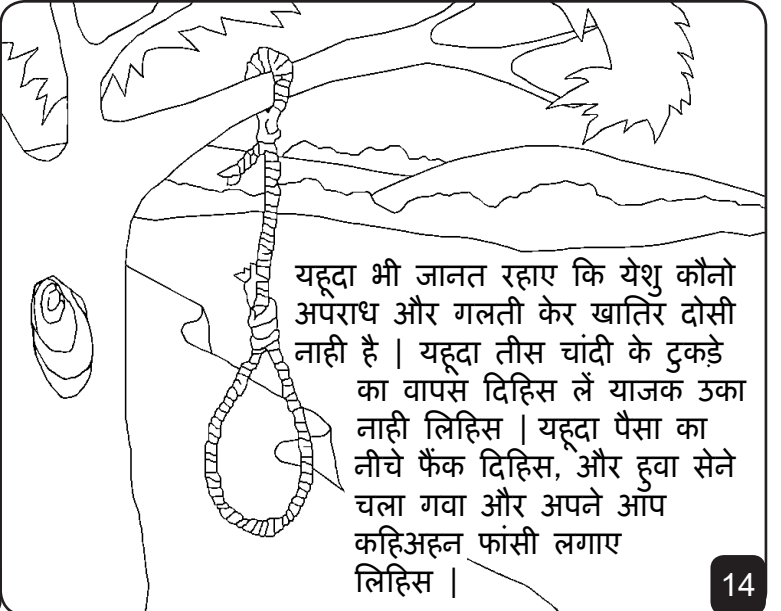 यहूदा भी जानत रहाए कि येशु कौनो
अपराध और गलती केर खातिर दोसी
नाही है | यहूदा तीस चांदी के टुकड़े
का वापस दिहिस लें याजक उका
नाही लिहिस | यहूदा पैसा का
नीचे फैंक दिहिस, और हुवा सेने
चला गवा और अपने आप
कहिअहन फांसी लगाए
लिहिस |
14